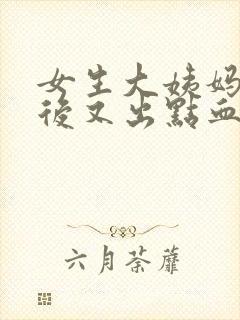 女生大姨妈
後又出點血
六月荼蘼